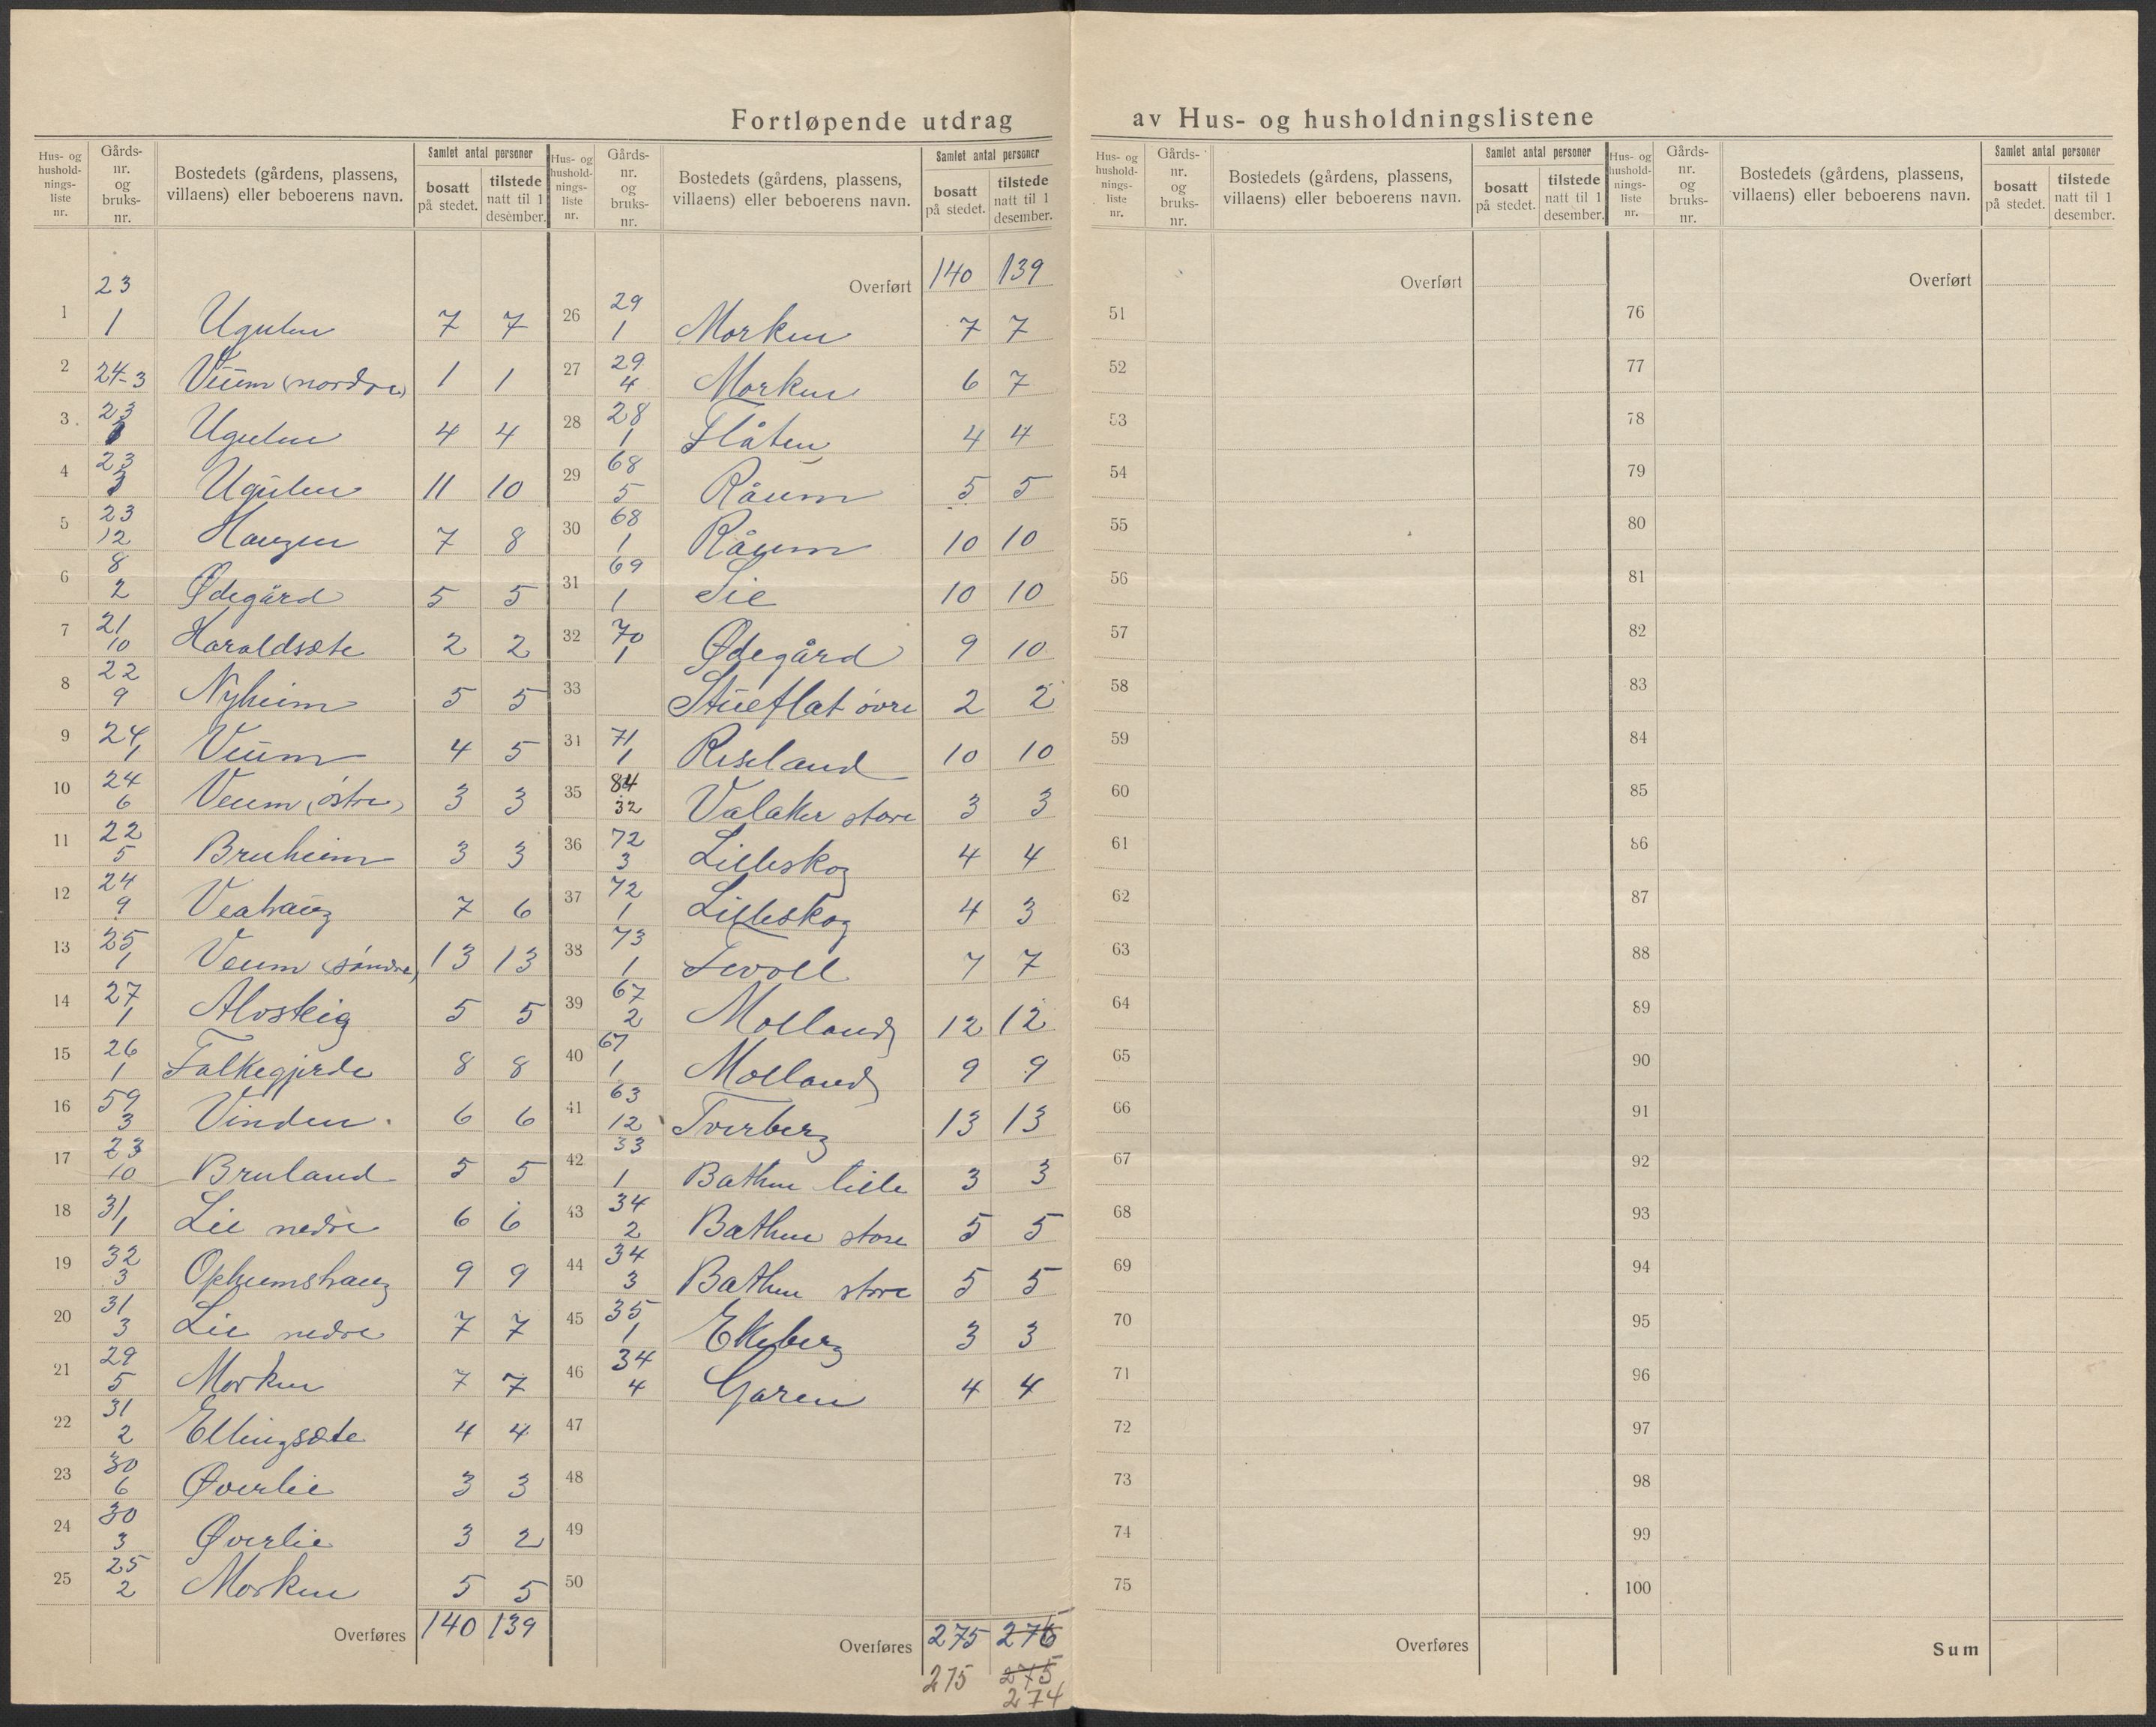 Fortløpende utdrag av Hus- og husholdningslistene
Hus- og husholdnings-liste nr. | Gårds-nr. og bruks-nr. | Bostedets (gårdens, plassens, villaens) eller beboerens navn. | Samlet antal personer | bosatt på stedet. | tilstede natt til 1 desember.
1 | 23 1 | Ugulen | 7 | 7
2 | 24-3 | Veum (nordre) | 1 | 1
3 | 23 | Ugulen | 4 | 4
4 | 23 3 | Ugulen | 11 | 10
5 | 23 12 | Haugen | 7 | 8
6 | 8 2 | Ødegård | 5 | 5
7 | 21 10 | Haraldsæte | 2 | 2
8 | 22 9 | Nyheim | 5 | 5
9 | 24 1 | Veum | 4 | 5
10 | 24 6 | Veum (östre) | 3 | 3
11 | 22 5 | Bruheim | 3 | 3
12 | 24 9 | Veahaug | 7 | 6
13 | 25 1 | Veum (söndre) | 13 | 13
14 | 27 1 | Alvsteig | 5 | 5
15 | 26 1 | Falkegjerde | 8 | 8
16 | 59 3 | Vinden | 6 | 6
17 | 23 10 | Bruland | 5 | 5
18 | 31 1 | Lie nedre | 6 | 6
19 | 32 3 | Opheimshaug | 9 | 9
20 | 31 3 | Lie nedre | 7 | 7
21 | 29 5 | Morken | 7 | 7
22 | 31 2 | Ellingsæte | 4 | 4
23 | 30 6 | Øverlie | 3 | 3
24 | 30 3 | Øverlie | 3 | 2
25 | 25 2 | Morken | 5 | 5
Overføres 140 139
Hus- og husholdnings-liste nr. | Gårds-nr. og bruks-nr. | Bostedets (gårdens, plassens, villaens) eller beboerens navn. | Samlet antal personer | bosatt på stedet. | tilstede natt til 1 desember.
Overført 140 139
26 | 29 1 | Morken | 7 | 7
27 | 29 4 | Morken | 6 | 7
28 | 28 1 | Flåten | 4 | 4
29 | 68 5 | Råum | 5 | 5
30 | 68 1 | Råum | 10 | 10
31 | 69 1 | Lie | 10 | 10
32 | 70 1 | Ødegård | 9 | 10
33 | Stueflat övre | 2 | 2
31 | 71 1 | Riseland | 10 | 10
35 | 84 32 | Valaker store | 3 | 3
36 | 72 3 | Lilleskog | 4 | 4
37 | 72 1 | Lilleskog | 4 | 3
38 | 73 1 | Tevoll | 7 | 7
39 | 67 2 | Molland | 12 | 12
40 | 67 1 | Molland | 9 | 9
41 | 63 12 | Tverberg | 13 | 13
42 | 33 1 | Bathen lille | 3 | 3
43 | 34 2 | Bathen store | 5 | 5
44 | 34 3 | Bathen store | 5 | 5
45 | 35 1 | Ekeberg | 3 | 3
46 | 34 4 | Garen | 4 | 4
47
48
49
50
Overføres 275 276
275 275
274
Hus- og husholdnings-liste nr. | Gårds-nr. og bruks-nr. | Bostedets (gårdens, plassens, villaens) eller beboerens navn. | Samlet antal personer | bosatt på stedet. | tilstede natt til 1 desember.
Overført
51
52
53
54
55
56
57
58
59
60
61
62
63
64
65
66
67
68
69
70
71
72
73
74
75
Overføres
Hus- og husholdnings-liste nr. | Gårds-nr. og bruks-nr. | Bostedets (gårdens, plassens, villaens) eller beboerens navn. | Samlet antal personer | bosatt på stedet. | tilstede natt til 1 desember.
Overført
76
77
78
79
80
81
82
83
84
85
86
87
88
89
90
91
92
93
94
95
96
97
98
99
100
Sum